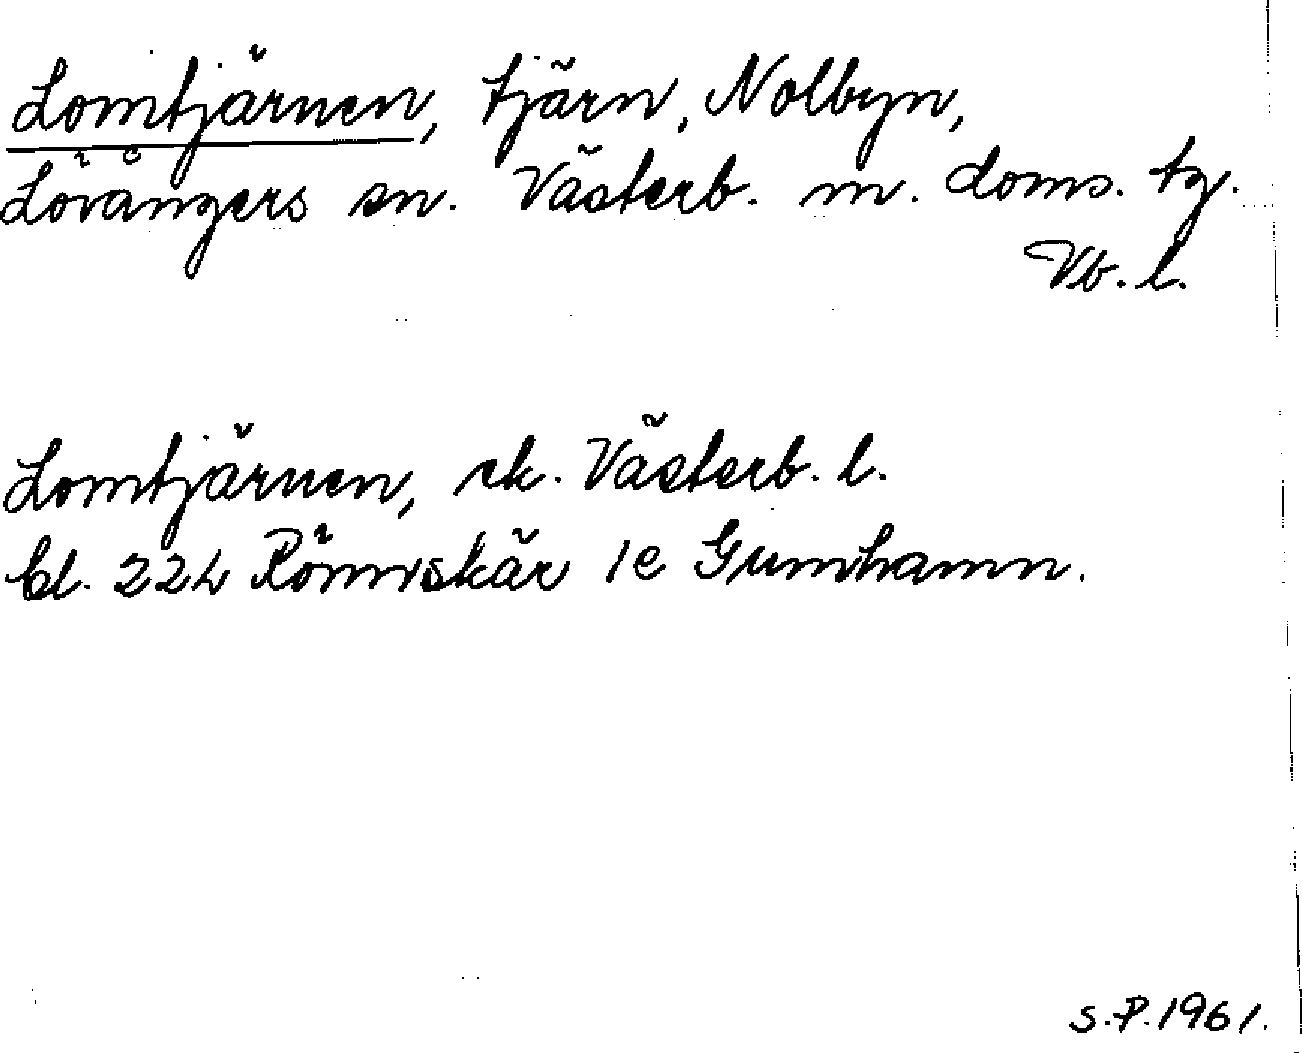 Lomtjärnen, tjärn, Nolbyn,
Lövångers sn. Västerb. m. doms. tg.
Vb. l.
Lomtjärnen, ek. Västerb. l.
bl. 224 Rönnskär 1e Gumhamn.
S.P. 1961.